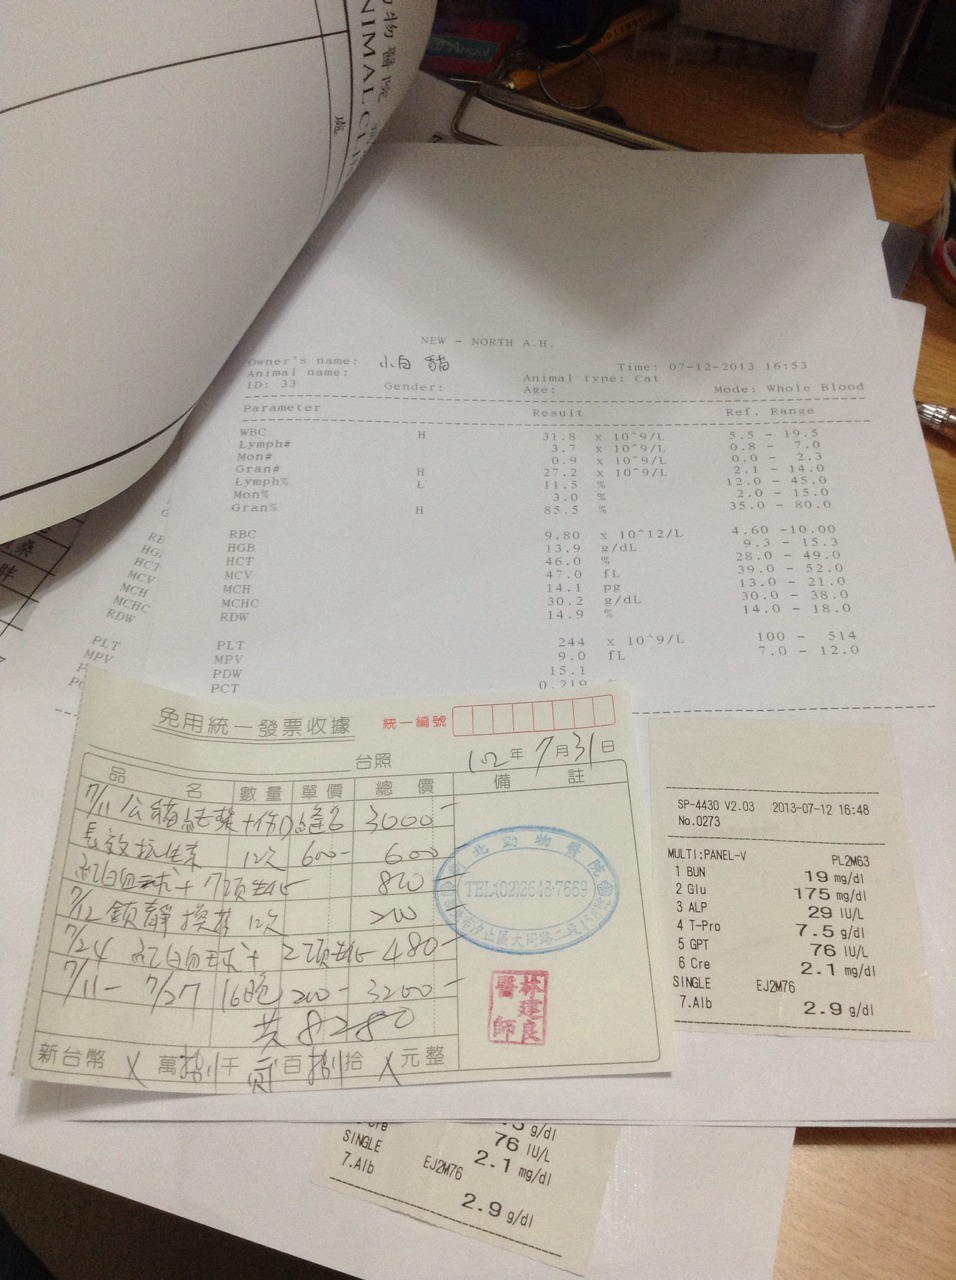 物醫院
NIMAL CLI
NEW - NORTH A.H.
Owner's name: 小白 貓 Time: 07-12-2013 16:53
Animal name: Animal type: Cat
ID: 33 Gender: Age: Mode: Whole Blood
Parameter Result Ref. Range
WBC H 31.8 x 10^9/L 5.5 - 19.5
Lymph# 3.7 x 10^9/L 0.8 - 7.0
Mon# 0.9 x 10^9/L 0.0 - 2.3
Gran# H 27.2 x 10^9/L 2.1 - 14.0
Lymph% L 11.5 % 12.0 - 45.0
Mon% 3.0 % 2.0 - 15.0
Gran% H 85.5 % 35.0 - 80.0
RBC 9.80 x 10^12/L 4.60 -10.00
HGB 13.9 g/dL 9.3 - 15.3
HCT 46.0 % 28.0 - 49.0
MCV 47.0 fL 39.0 - 52.0
MCH 14.1 pg 13.0 - 21.0
MCHC 30.2 g/dL 30.0 - 38.0
RDW 14.9 % 14.0 - 18.0
PLT 244 x 10^9/L 100 - 514
MPV 9.0 fL 7.0 - 12.0
PDW 15.1
PCT 0.219
HCT
MCV
MCH
MCHC
RDW
PLT
MPV
免用統一發票收據 統一編號
台照 102年7月31日
品名 數量 單價 總價 備註
7/11 公貓結紮+傷口縫合 3000-
長效抗生素 1次 600- 600
紅白血球+7項生化 800
7/12 鎮靜換藥 1次 200
7/24 紅白血球+2項生化 480-
7/11-7/27 16包 200- 3200-
共8280
新台幣 X 萬 捌 千 貳 百 捌 拾 X 元整
北動物醫院
TEL:(02)2648-7669
汐止區大同路二段
林建良醫師
SP-4430 V2.03 2013-07-12 16:48
No.0273
MULTI:PANEL-V PL2M63
1 BUN 19 mg/dl
2 Glu 175 mg/dl
3 ALP 29 IU/L
4 T-Pro 7.5 g/dl
5 GPT 76 IU/L
6 Cre 2.1 mg/dl
SINGLE EJ2M76
7.Alb 2.9 g/dl
g/dl
76 IU/L
Cre 2.1 mg/dl
SINGLE EJ2M76
7.Alb 2.9 g/dl